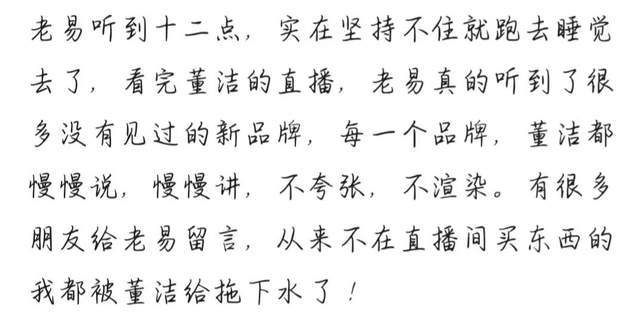 老易听到十二点，实在坚持不住就跑去睡觉
去了，看完董洁的直播，老易真的听到了很
多没有见过的新品牌，每一个品牌，董洁都
慢慢说，慢慢讲，不夸张，不渲染。有很多
朋友给老易留言，从来不在直播间买东西的
我都被董洁给拖下水了！